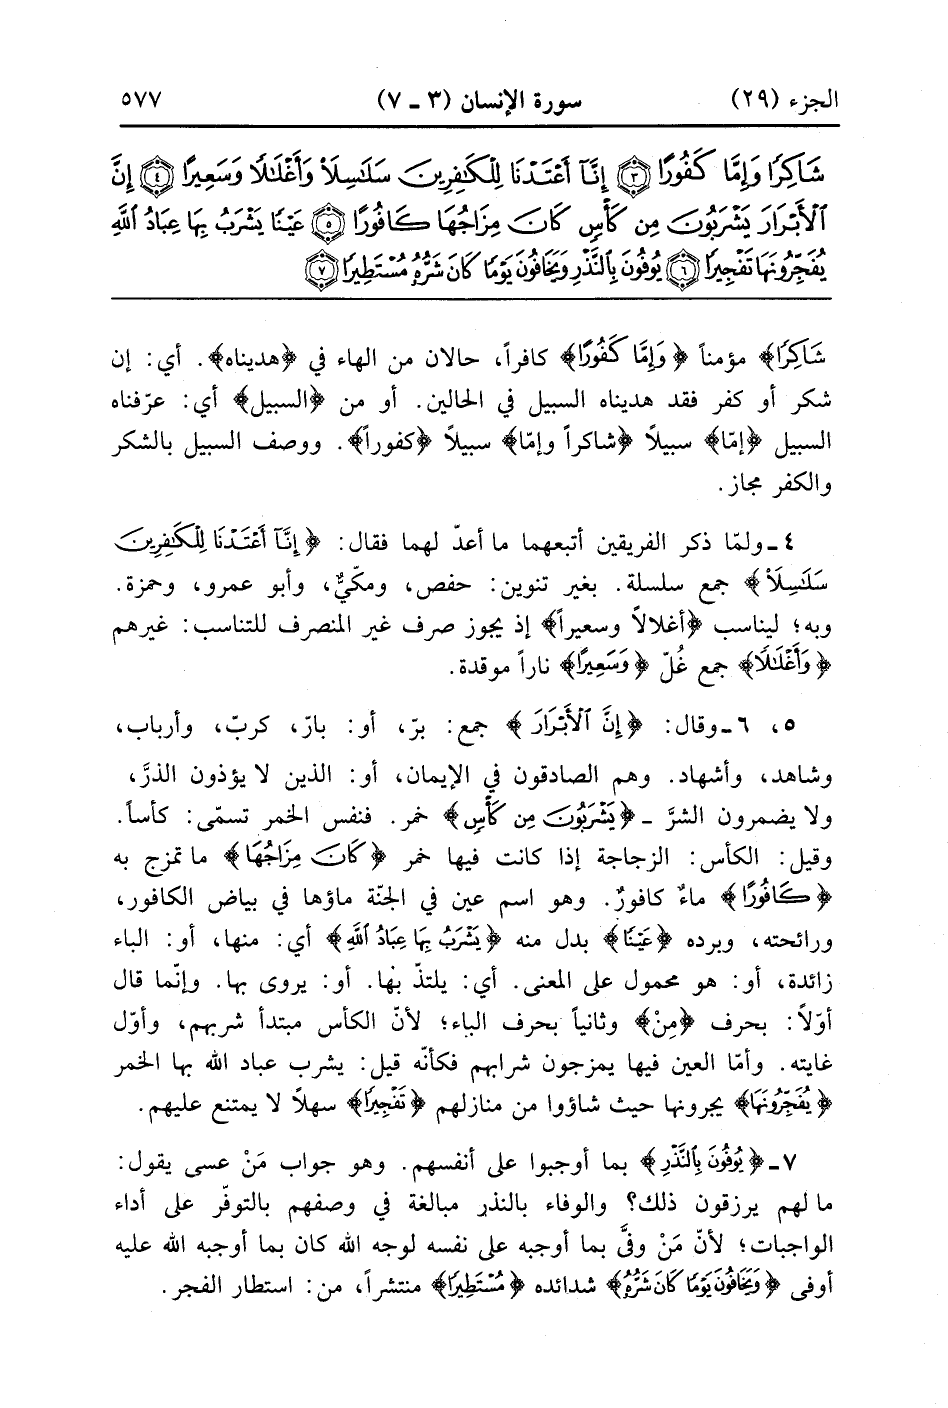 الجزء (٢٩) سورة الإنسان (٣ ـ ٧) ٥٧٧
شَاكِرًا وَإِمَّا كَفُورًا ﴿٣﴾ إِنَّآ أَعْتَدْنَا لِلْكَٰفِرِينَ سَلَٰسِلَا۟ وَأَغْلَٰلًا وَسَعِيرًا ﴿٤﴾ إِنَّ
ٱلْأَبْرَارَ يَشْرَبُونَ مِن كَأْسٍ كَانَ مِزَاجُهَا كَافُورًا ﴿٥﴾ عَيْنًا يَشْرَبُ بِهَا عِبَادُ ٱللَّهِ
يُفَجِّرُونَهَا تَفْجِيرًا ﴿٦﴾ يُوفُونَ بِٱلنَّذْرِ وَيَخَافُونَ يَوْمًا كَانَ شَرُّهُۥ مُسْتَطِيرًا ﴿٧﴾
شَاكِرًا﴾ مؤمناً ﴿وَإِمَّا كَفُورًا﴾ كافراً، حالان من الهاء في ﴿هديناه﴾. أي: إن
شكر أو كفر فقد هديناه السبيل في الحالين. أو من ﴿السبيل﴾ أي: عرّفناه
السبيل ﴿إمّا﴾ سبيلاً ﴿شاكراً وإمّا﴾ سبيلاً ﴿كفوراً﴾. ووصف السبيل بالشكر
والكفر مجاز.
٤ ـ ولمّا ذكر الفريقين أتبعهما ما أعدّ لهما فقال: ﴿إِنَّآ أَعْتَدْنَا لِلْكَٰفِرِينَ
سَلَٰسِلَا۟﴾ جمع سلسلة. بغير تنوين: حفص، ومكّيٌّ، وأبو عمرو، وحمزة.
وبه؛ ليناسب ﴿أغلالاً وسعيراً﴾ إذ يجوز صرف غير المنصرف للتناسب: غيرهم
﴿وَأَغْلَٰلًا﴾ جمع غُلّ ﴿وَسَعِيرًا﴾ ناراً موقدة.
٥، ٦ ـ وقال: ﴿إِنَّ ٱلْأَبْرَارَ﴾ جمع: برّ، أو: بارّ، كربّ، وأرباب،
وشاهد، وأشهاد. وهم الصادقون في الإيمان، أو: الذين لا يؤذون الذرَّ،
ولا يضمرون الشرَّ ـ ﴿يَشْرَبُونَ مِن كَأْسٍ﴾ خمر. فنفس الخمر تسمّى: كأساً.
وقيل: الكأس: الزجاجة إذا كانت فيها خمر ﴿كَانَ مِزَاجُهَا﴾ ما تمزج به
﴿كَافُورًا﴾ ماءُ كافورٌ. وهو اسم عين في الجنّة ماؤها في بياض الكافور،
ورائحته، وبرده ﴿عَيْنًا﴾ بدل منه ﴿يَشْرَبُ بِهَا عِبَادُ ٱللَّهِ﴾ أي: منها، أو: الباء
زائدة، أو: هو محمول على المعنى. أي: يلتذّ بها. أو: يروى بها. وإنّما قال
أوّلاً: بحرف ﴿مِنْ﴾ وثانياً بحرف الباء؛ لأنّ الكأس مبتدأ شربهم، وأوّل
غايته. وأمّا العين فبها يمزجون شرابهم فكأنّه قيل: يشرب عباد الله بها الخمر
﴿يُفَجِّرُونَهَا﴾ يجرونها حيث شاؤوا من منازلهم ﴿تَفْجِيرًا﴾ سهلاً لا يمتنع عليهم.
٧ ـ ﴿يُوفُونَ بِٱلنَّذْرِ﴾ بما أوجبوا على أنفسهم. وهو جواب مَنْ عسى يقول:
ما لهم يرزقون ذلك؟ والوفاء بالنذر مبالغة في وصفهم بالتوفّر على أداء
الواجبات؛ لأنّ مَنْ وفَّى بما أوجبه على نفسه لوجه الله كان بما أوجبه الله عليه
أوفى ﴿وَيَخَافُونَ يَوْمًا كَانَ شَرُّهُۥ﴾ شدائده ﴿مُسْتَطِيرًا﴾ منتشراً، من: استطار الفجر.